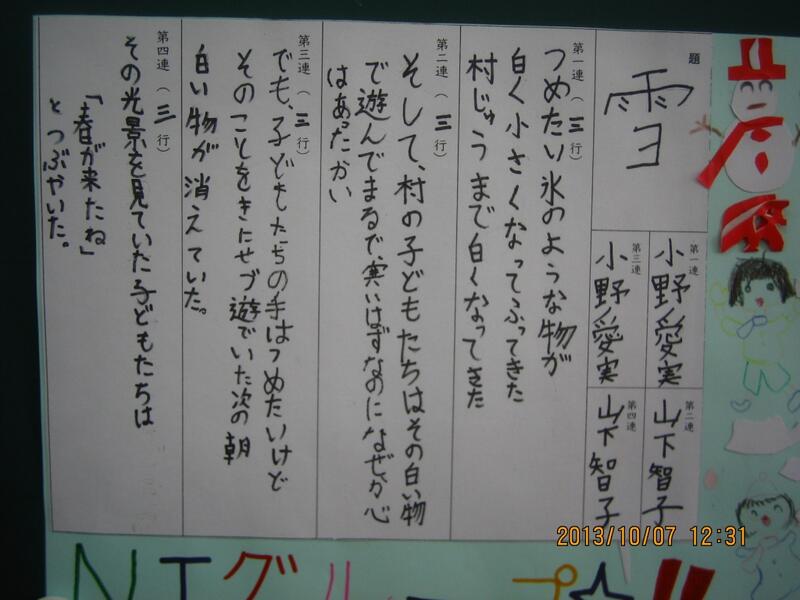 題
雪
第一連
小野愛実
第二連
山下智子
第三連
小野愛実
第四連
山下智子
第一連(三行)
つめたい氷のような物が
白く小さくなってふってきた
村じゅうまで白くなってきた
第二連(三行)
そして、村の子どもたちはその白い物
で遊んでまるで、寒いはずなのになぜか心
はあったかい
第三連(三行)
でも、子どもたちの手はつめたいけど
そのことをきにせづ遊でいた次の朝
白い物が消えていた。
第四連(三行)
その光景を見ていた子どもたちは
「春が来たね」
とつぶやいた。
NTグループ☆!!
2013/10/07 12:31